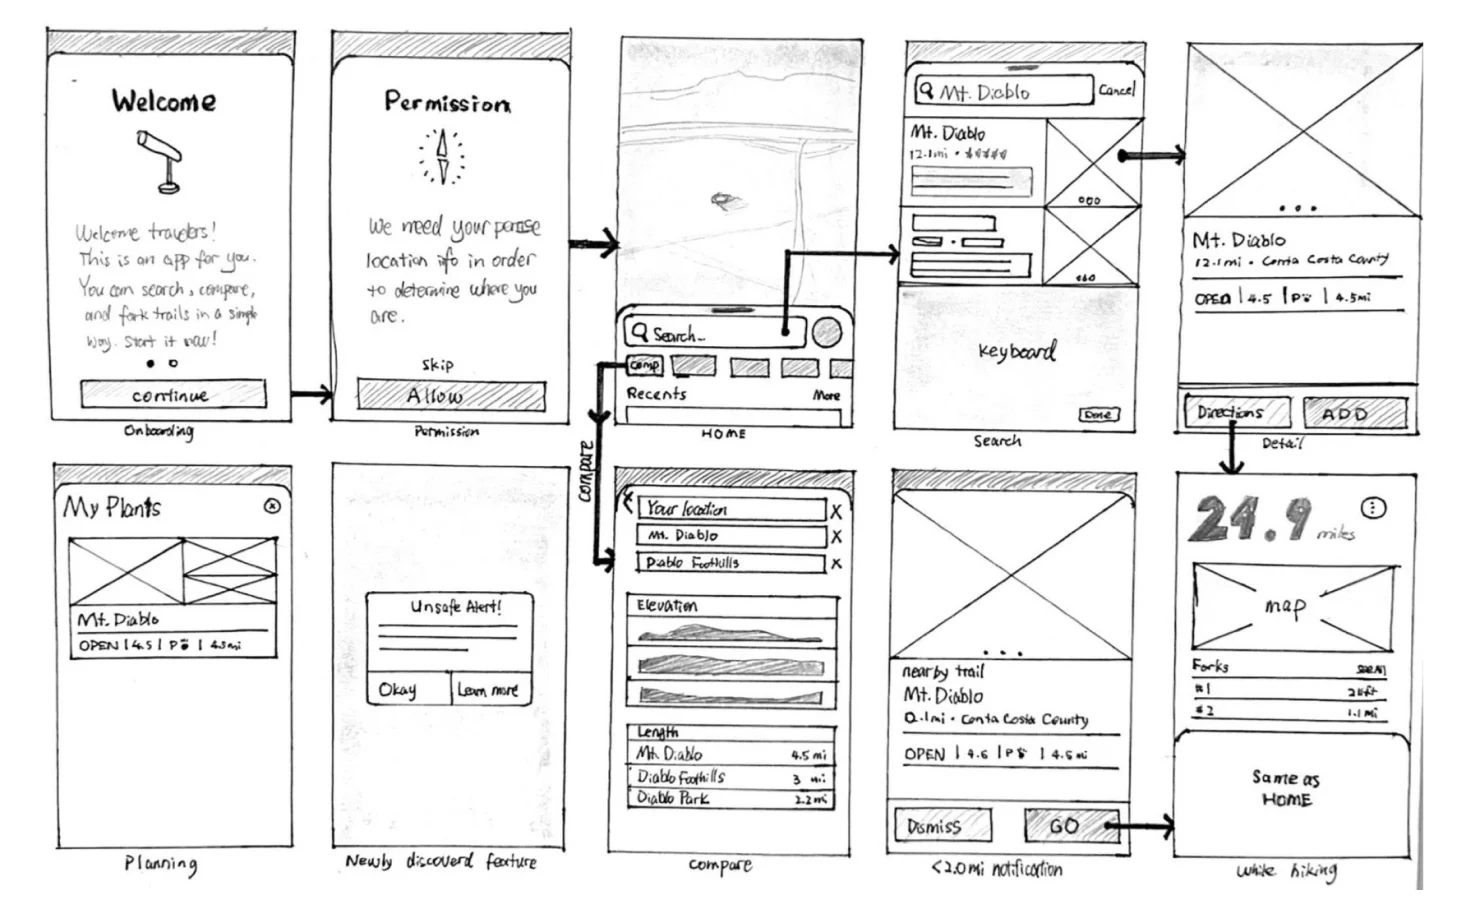 Welcome
Welcome travelers!
This is an app for you.
You can search, compare,
and fork trails in a simple
way. Start it now!
continue
Onboarding
Permission
We need your
location info in order
to determine where you
are.
Skip
Allow
Permission
Search...
comp
Recents More
HOME
compare
Mt. Diablo Cancel
Mt. Diablo
12.1mi •
keyboard
Done
Search
Mt. Diablo
12.1mi • Conta Costa County
OPEN | 4.5 | P | 4.5mi
Directions ADD
Detail
My Plants
Mt. Diablo
OPEN | 4.5 | P | 4.5mi
Planning
Unsafe Alert!
Okay Learn more
Newly discoverd feature
Your location X
Mt. Diablo X
Diablo Foothills X
Elevation
Length
Mt. Diablo 4.5 mi
Diablo Foothills 3 mi
Diablo Park 2.2 mi
compare
nearby trail
Mt. Diablo
0.1mi • Conta Costa County
OPEN | 4.6 | P | 4.5mi
Dismiss GO
<2.0mi notification
24.9 miles
map
Forks
#1 24ft
#2 1.1 mi
Same as
HOME
while hiking